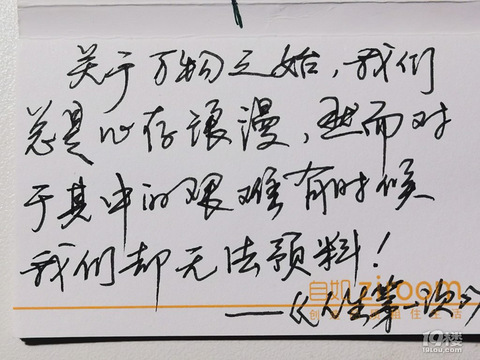 关于万物之始，我们
总是心存浪漫，然而对
于其中的艰难有时候
我们却无法预料！
自如 ziroom
——《人生第一次》
19楼
19lou.com